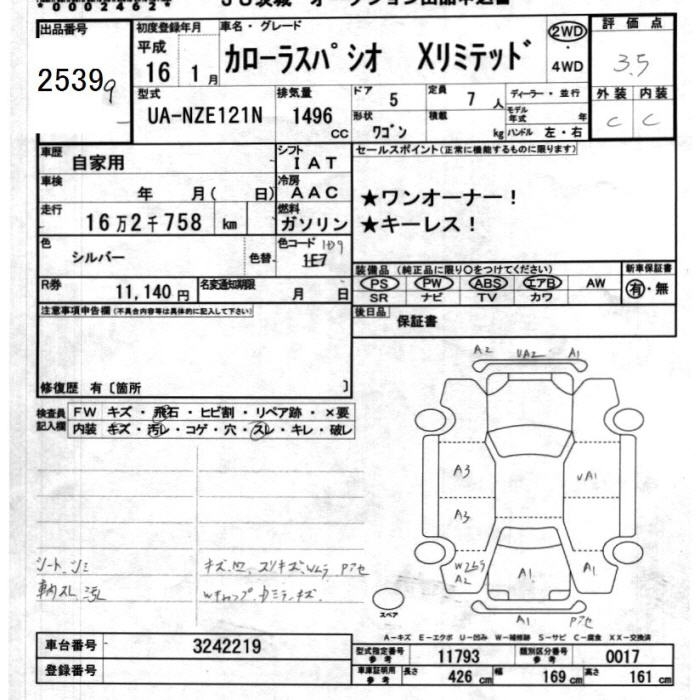 00024624
出品番号
初度登録年月
車名・グレード
2WD
評価点
平成 16 1月
カローラスパシオ Xリミテッド
・
4WD
3.5
25399
型式
排気量
ドア 5
定員 7人
ディーラー・並行
外装 内装
UA-NZE121N
1496 CC
形状 ワゴン
積載 kg
モデル年式 年
ハンドル 左・右
C C
車歴 自家用
シフト IAT
セールスポイント(正常に機能するものに限ります)
車検 年 月( 日)
冷房 AAC
★ワンオーナー!
走行 16万2千758 km
燃料 ガソリン
★キーレス!
色 シルバー 色替
色コード 1D9
1E7
装備品 (純正品に限り○をつけてください)
新車保証書
R券 11,140円
名変通知期限 月 日
PS PW ABS エアB AW
SR ナビ TV カワ
有・無
注意事項申告欄(不具合内容等は具体的に記入して下さい)
後日品 保証書
修復歴 有〔箇所 〕
検査員記入欄
FW キズ・飛石・ヒビ割・リペア跡・×要
内装 キズ・汚レ・コゲ・穴・スレ・キレ・破レ
A2 UA2 A1
A3 UA1
A3
A2 A1 A1
A1
スペア
A-キズ E-エクボ U-凹み W-補修跡 S-サビ C-腐食 XX-交換済
車台番号 3242219
型式指定番号 参考 11793
類別区分番号 参考 0017
登録番号
車庫証明用 参考 長さ 426 cm 幅 169 cm 高さ 161 cm